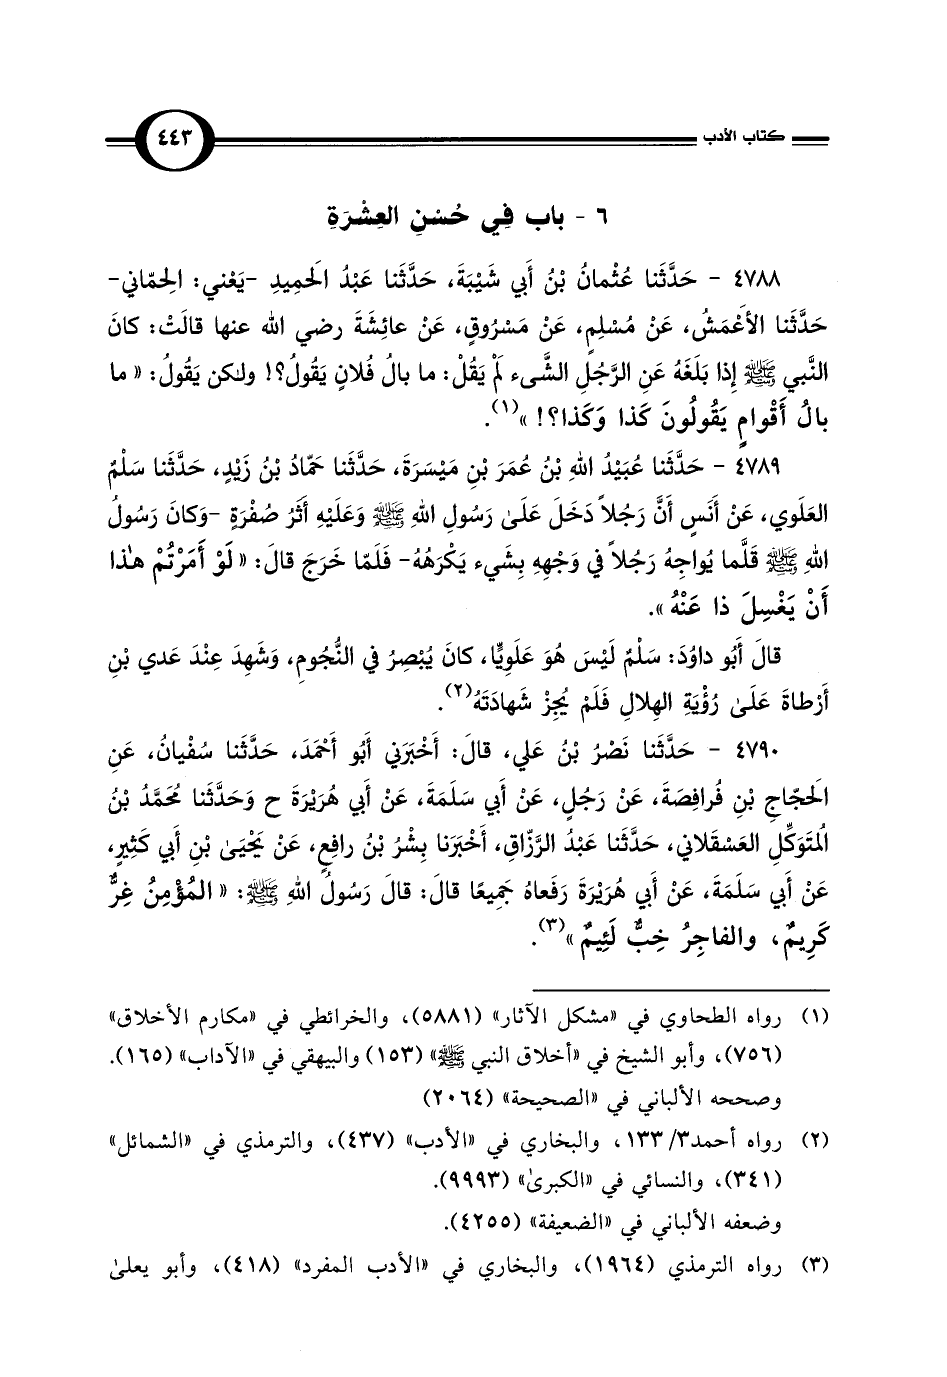 كتاب الأدب
٤٤٣
٦ - باب فِي حُسْنِ العِشْرَةِ
٤٧٨٨ - حَدَّثَنا عُثْمانُ بْنُ أَبي شَيْبَةَ، حَدَّثَنا عَبْدُ الَحمِيدِ -يَعْني: الِحمّاني-
حَدَّثَنا الأَعْمَشُ، عَنْ مُسْلِمٍ، عَنْ مَسْرُوقٍ، عَنْ عائِشَةَ رضي الله عنها قالَتْ: كانَ
النَّبي ﷺ إِذا بَلَغَهُ عَنِ الرَّجُلِ الشَّىء لَمْ يَقُلْ: ما بالُ فُلانٍ يَقُولُ؟! ولكن يَقُولُ: « ما
بالُ أَقْوامٍ يَقُولُونَ كَذا وَكَذا؟! »(١).
٤٧٨٩ - حَدَّثَنا عُبَيْدُ اللهِ بْنُ عُمَرَ بْنِ مَيْسَرَةَ، حَدَّثَنا حَمّادُ بْنُ زَيْدٍ، حَدَّثَنا سَلْمٌ
العَلَوي، عَنْ أَنَسٍ أَنَّ رَجُلاً دَخَلَ عَلَىٰ رَسُولِ اللهِ ﷺ وَعَلَيْهِ أَثَرُ صُفْرَةٍ -وَكانَ رَسُولُ
اللهِ ﷺ قَلَّما يُواجِهُ رَجُلاً في وَجْهِهِ بِشَيء يَكْرَهُهُ- فَلَمّا خَرَجَ قالَ: « لَوْ أَمَرْتُمْ هٰذا
أَنْ يَغْسِلَ ذا عَنْهُ ».
قالَ أَبُو داوُدَ: سَلْمٌ لَيْسَ هُوَ عَلَوِيًّا، كانَ يُبْصِرُ في النُّجُومِ، وَشَهِدَ عِنْدَ عَدي بْنِ
أَرْطاةَ عَلَىٰ رُؤْيَةِ الهِلالِ فَلَمْ يُجِزْ شَهادَتَهُ(٢).
٤٧٩٠ - حَدَّثَنا نَصْرُ بْنُ عَلي، قالَ: أَخْبَرَني أَبُو أَحْمَدَ، حَدَّثَنا سُفْيانُ، عَنِ
الَحجّاجِ بْنِ فُرافِصَةَ، عَنْ رَجُلٍ، عَنْ أَبي سَلَمَةَ، عَنْ أَبي هُرَيْرَةَ ح وَحَدَّثَنا مُحَمَّدُ بْنُ
المُتَوَكِّلِ العَسْقَلاني، حَدَّثَنا عَبْدُ الرَّزّاقِ، أَخْبَرَنا بِشْرُ بْنُ رافِعٍ، عَنْ يَحْيَىٰ بْنِ أَبي كَثِيرٍ،
عَنْ أَبي سَلَمَةَ، عَنْ أَبي هُرَيْرَةَ رَفَعاهُ جَمِيعًا قالَ: قالَ رَسُولُ اللهِ ﷺ: « المُؤْمِنُ غِرٌّ
كَرِيمٌ، والفاجِرُ خِبٌّ لَئِيمٌ »(٣).
(١) رواه الطحاوي في «مشكل الآثار» (٥٨٨١)، والخرائطي في «مكارم الأخلاق»
(٧٥٦)، وأبو الشيخ في «أخلاق النبي ﷺ» (١٥٣) والبيهقي في «الآداب» (١٦٥).
وصححه الألباني في «الصحيحة» (٢٠٦٤)
(٢) رواه أحمد٣/ ١٣٣، والبخاري في «الأدب» (٤٣٧)، والترمذي في «الشمائل»
(٣٤١)، والنسائي في «الكبرىٰ» (٩٩٩٣).
وضعفه الألباني في «الضعيفة» (٤٢٥٥).
(٣) رواه الترمذي (١٩٦٤)، والبخاري في «الأدب المفرد» (٤١٨)، وأبو يعلىٰ